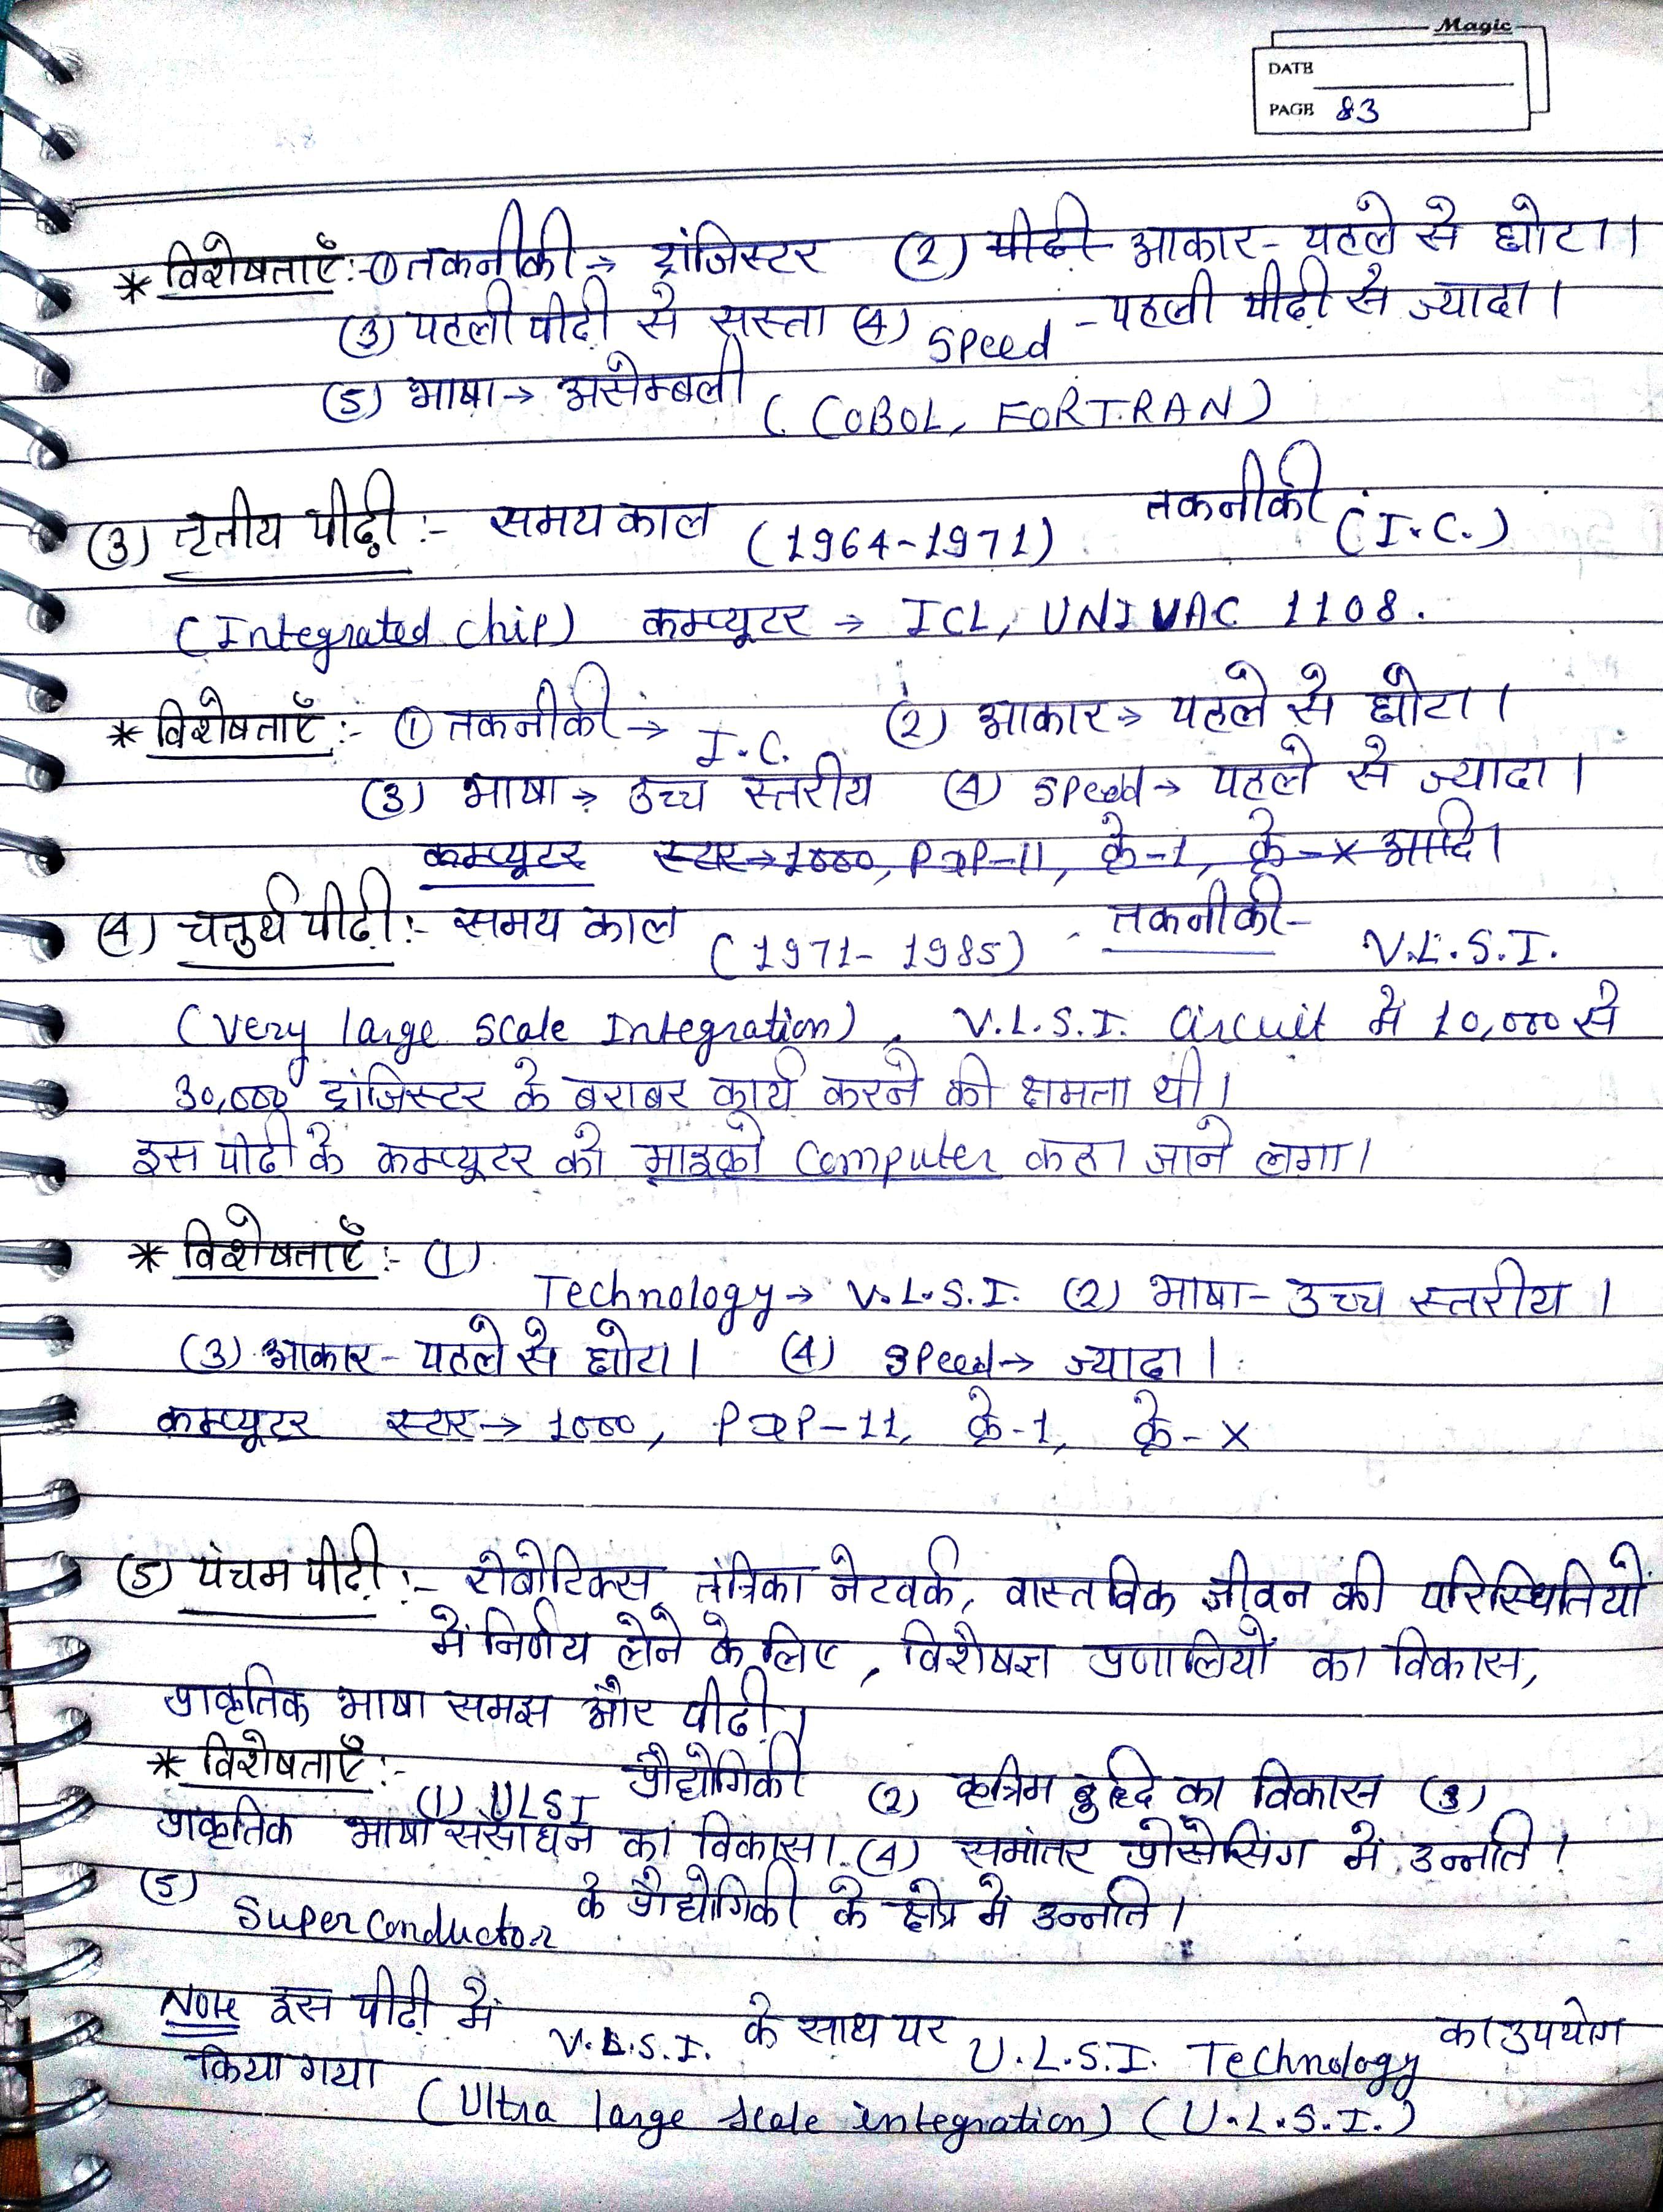 Magic
DATE
PAGE 83
* विशेषताएँ :- ① तकनीकी → ट्रांजिस्टर (2) पीढी आकार - पहले से छोटा।
(3) पहली पीढी से सस्ता (4) Speed - पहली पीढी से ज्यादा।
(5) भाषा → असेम्बली (COBOL, FORTRAN)
(3) तृतीय पीढ़ी :- समय काल (1964-1971) तकनीकी (I.C.)
(Integrated chip) कम्प्यूटर → ICL, UNIVAC 1108.
* विशेषताएँ :- ① तकनीकी → I.C. (2) आकार → पहले से छोटा।
(3) भाषा → उच्च स्तरीय (4) Speed → पहले से ज्यादा।
कम्प्यूटर स्टार → 1000, PDP-11, क्रे-1, क्रे-X आदि।
(4) चतुर्थ पीढी :- समय काल (1971-1985) तकनीकी - V.L.S.I.
(Very large Scale Integration), V.L.S.I. Circuit में 10,000 से
30,000 ट्रांजिस्टर के बराबर कार्य करने की क्षमता थी।
इस पीढी के कम्प्यूटर को माइक्रो Computer कहा जाने लगा।
* विशेषताएँ :- (1) Technology → V.L.S.I. (2) भाषा - उच्च स्तरीय।
(3) आकार - पहले से छोटा। (4) Speed → ज्यादा।
कम्प्यूटर स्टार → 1000, PDP-11, क्रे-1, क्रे-X
(5) पंचम पीढी :- रोबोटिक्स, तंत्रिका नेटवर्क, वास्तविक जीवन की परिस्थितियों
में निर्णय लेने के लिए, विशेषज्ञ प्रणालियों का विकास,
प्राकृतिक भाषा समझ और पीढी।
* विशेषताएँ :- (1) ULSI प्रौद्योगिकी (2) कृत्रिम बुद्धि का विकास (3)
प्राकृतिक भाषा संसाधन का विकास। (4) समांतर प्रोसेसिंग में उन्नति।
(5) Superconductor के प्रौद्योगिकी के क्षेत्र में उन्नति।
Note इस पीढी में V.L.S.I. के साथ पर U.L.S.I. Technology का उपयोग
किया गया (Ultra large scale integration) (U.L.S.I.)